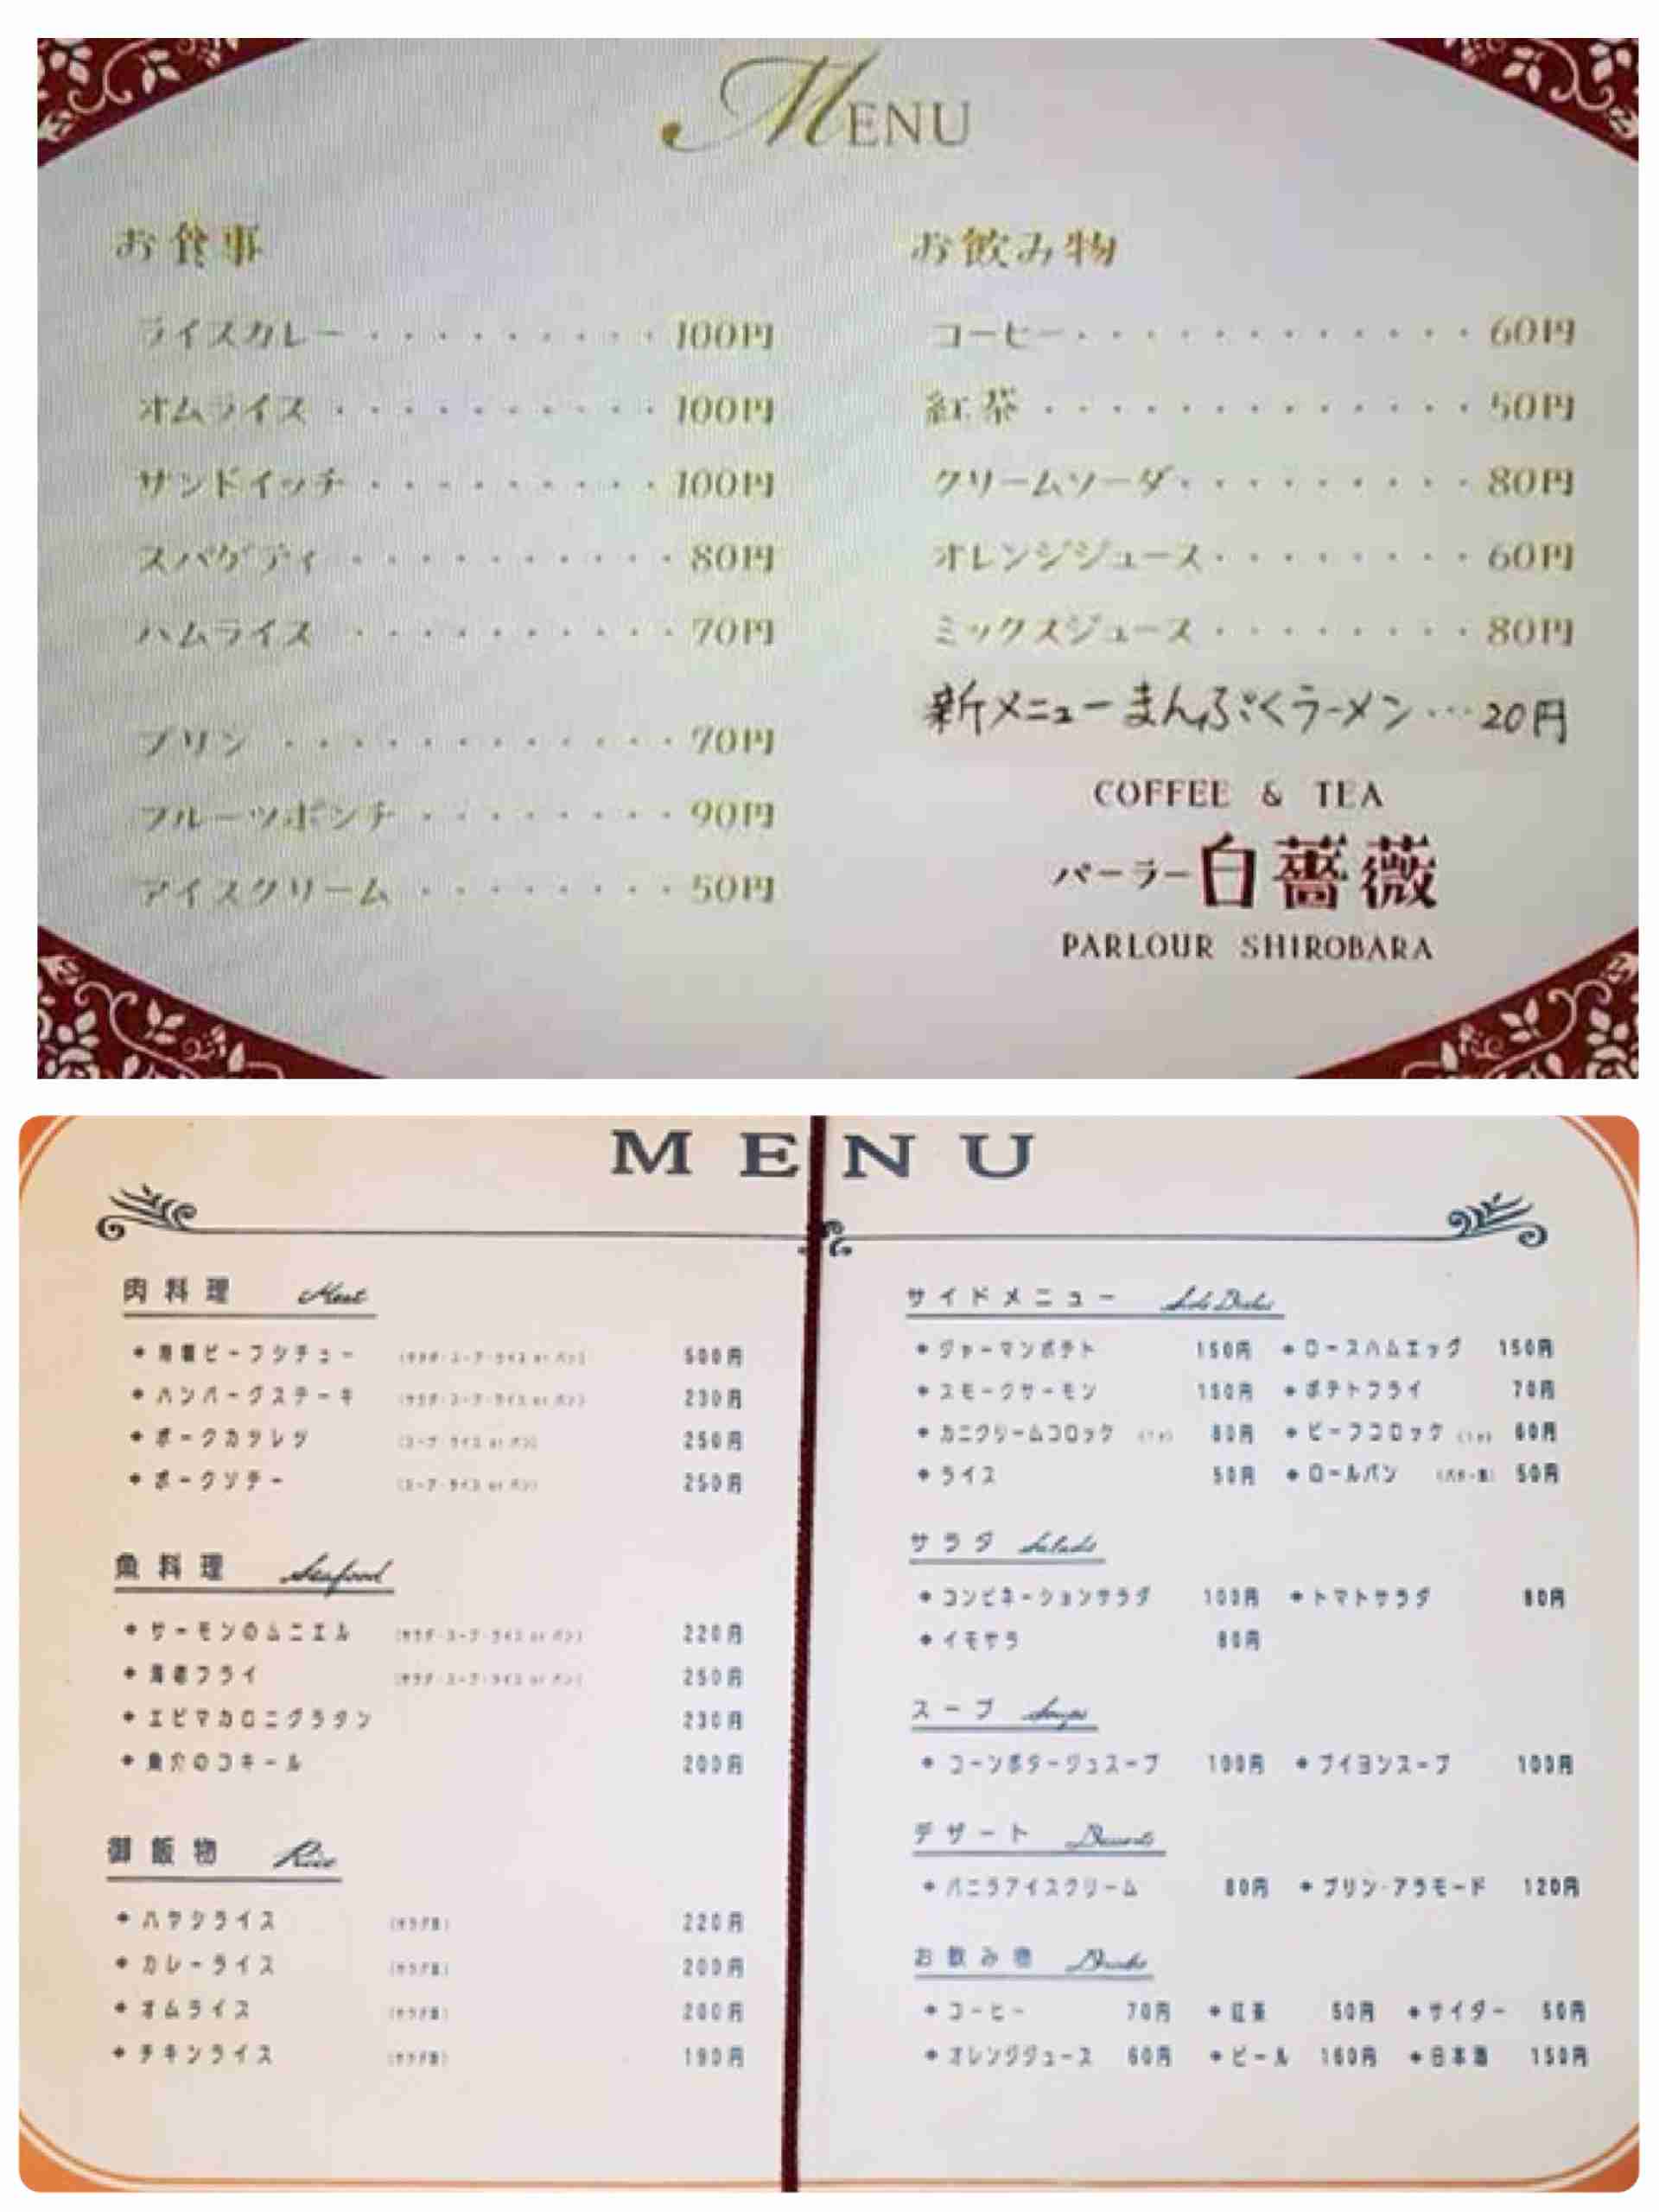 MENU
お食事
ライスカレー・・・・・・・・・100円
オムライス・・・・・・・・・・100円
サンドイッチ・・・・・・・・・100円
スパゲティ・・・・・・・・・・80円
ハムライス・・・・・・・・・・70円
プリン・・・・・・・・・・・・70円
フルーツポンチ・・・・・・・・90円
アイスクリーム・・・・・・・・50円
お飲み物
コーヒー・・・・・・・・・・・・60円
紅茶・・・・・・・・・・・・・50円
クリームソーダ・・・・・・・・・80円
オレンジジュース・・・・・・・・60円
ミックスジュース・・・・・・・・80円
新メニューまんぷくラーメン…20円
COFFEE & TEA
パーラー白薔薇
PARLOUR SHIROBARA
MENU
肉料理 Meat
ビーフシチュー (サラダ・スープ・ライス or パン) 500円
ハンバーグステーキ (サラダ・スープ・ライス or パン) 230円
ポークカツレツ (スープ・ライス or パン) 250円
ポークソテー (スープ・ライス or パン) 250円
魚料理 Seafood
サーモンのムニエル (サラダ・スープ・ライス or パン) 220円
海老フライ (サラダ・スープ・ライス or パン) 250円
エビマカロニグラタン 230円
魚介のコキール 200円
御飯物 Rice
ハヤシライス 220円
カレーライス 200円
オムライス 200円
チキンライス 190円
サイドメニュー Side Dishes
ジャーマンポテト 150円 ロースハムエッグ 150円
スモークサーモン 150円 ポテトフライ 70円
カニクリームコロッケ 80円 ビーフコロッケ 60円
ライス 50円 ロールパン 50円
サラダ Salads
コンビネーションサラダ 100円 トマトサラダ 80円
イモサラ 80円
スープ Soups
コーンポタージュスープ 100円 ブイヨンスープ 100円
デザート Desserts
バニラアイスクリーム 80円 プリン・アラモード 120円
お飲み物 Drinks
コーヒー 70円 紅茶 50円 サイダー 50円
オレンジジュース 60円 ビール 160円 日本酒 150円